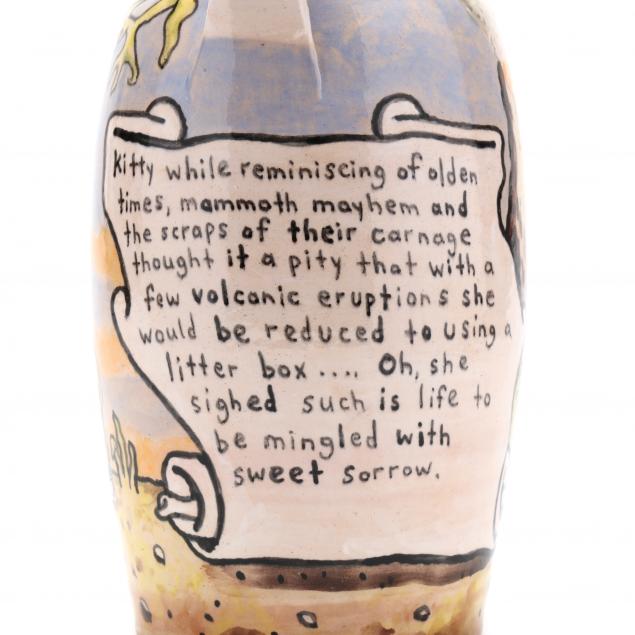 Kitty while reminiscing of olden
times, mammoth mayhem and
the scraps of their carnage
thought it a pity that with a
few volcanic eruptions she
would be reduced to using a
litter box .... Oh, she
sighed such is life to
be mingled with
sweet sorrow.